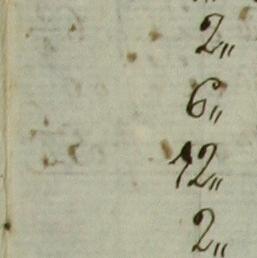 2„
6„
12„
2„